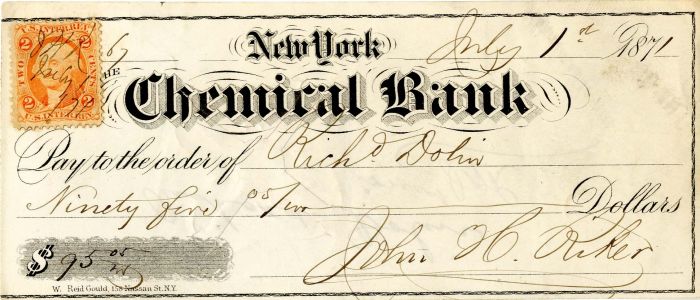 U.S. INTER. REV.
2 2
TWO CENTS
2 2
U.S. INTER. REV.
67
New York July 1st 1871
THE
Chemical Bank
Pay to the order of Richd Dolin
Ninety five 05/100 Dollars
$ 95 05
John H. Riker
W. Reid Gould, 158 Nassau St. N.Y.